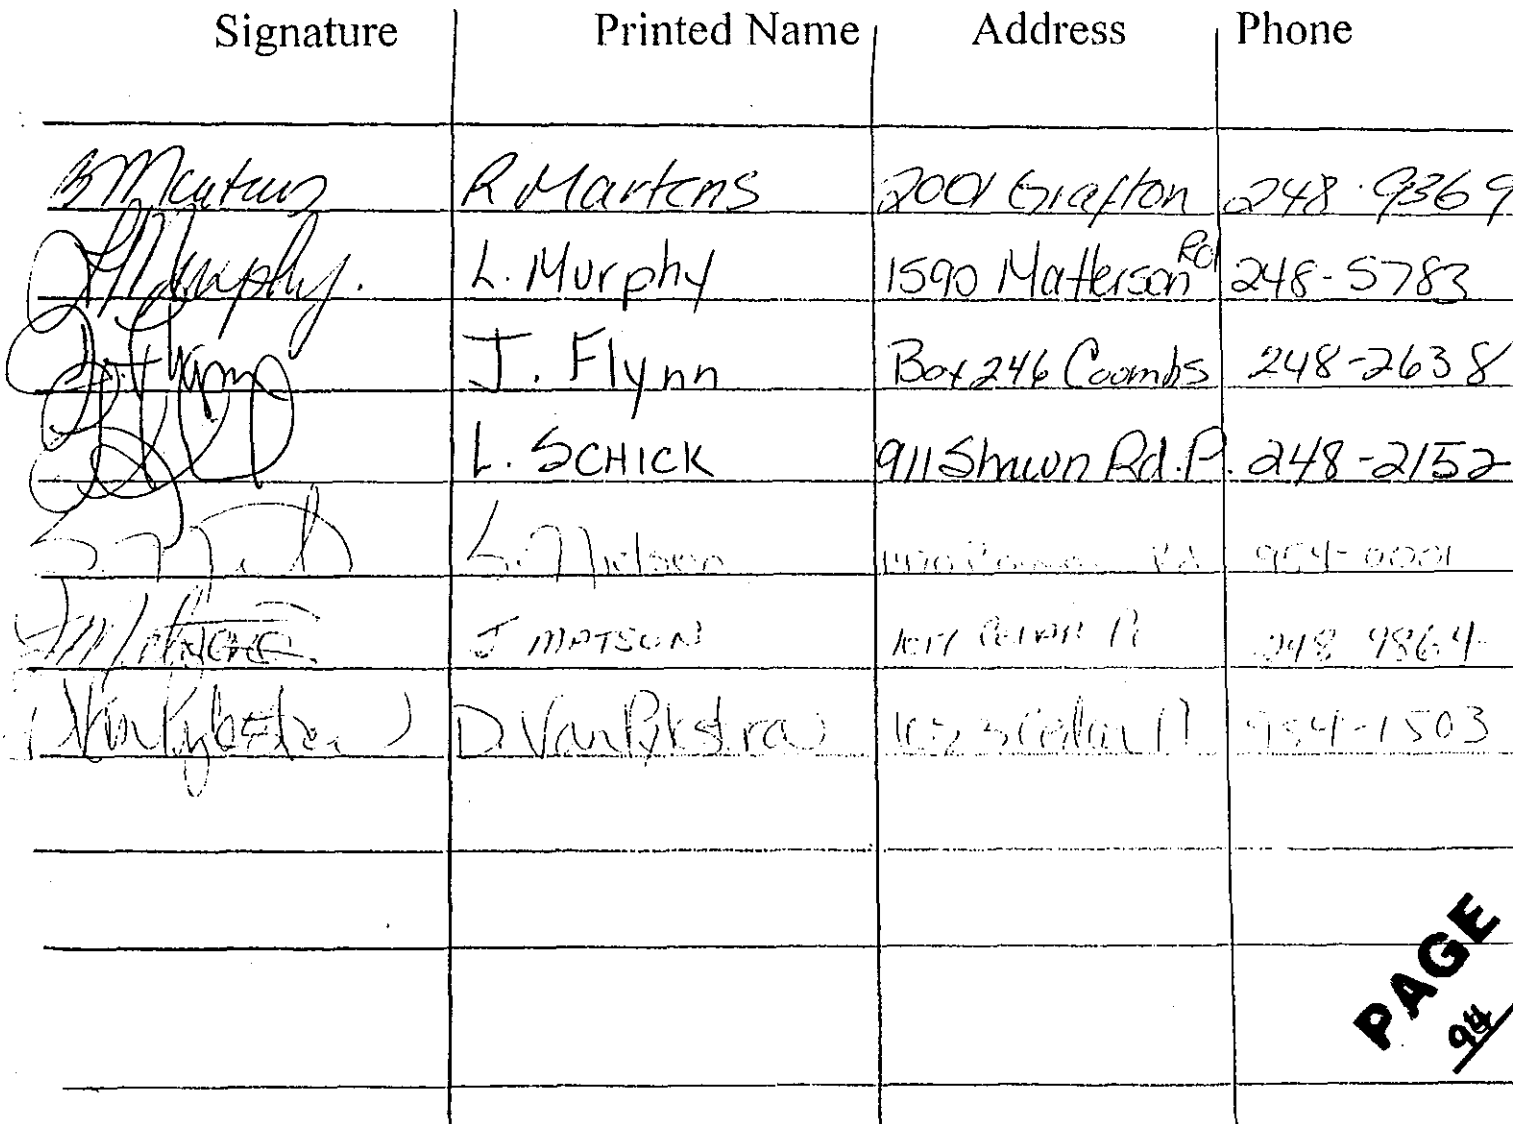 Signature Printed Name Address Phone
R Martens 2001 Grafton 248-9369
L Murphy. L. Murphy 1590 Matterson Rd 248-5783
J. Flynn J. Flynn Box 246 Coombs 248-2638
L. SCHICK 911 Shawn Rd. P. 248-2152
L. Nielsen Rd 954-0001
J MATSON 248 9864
D. Van Pykstra Cedar 954-1503
PAGE
94